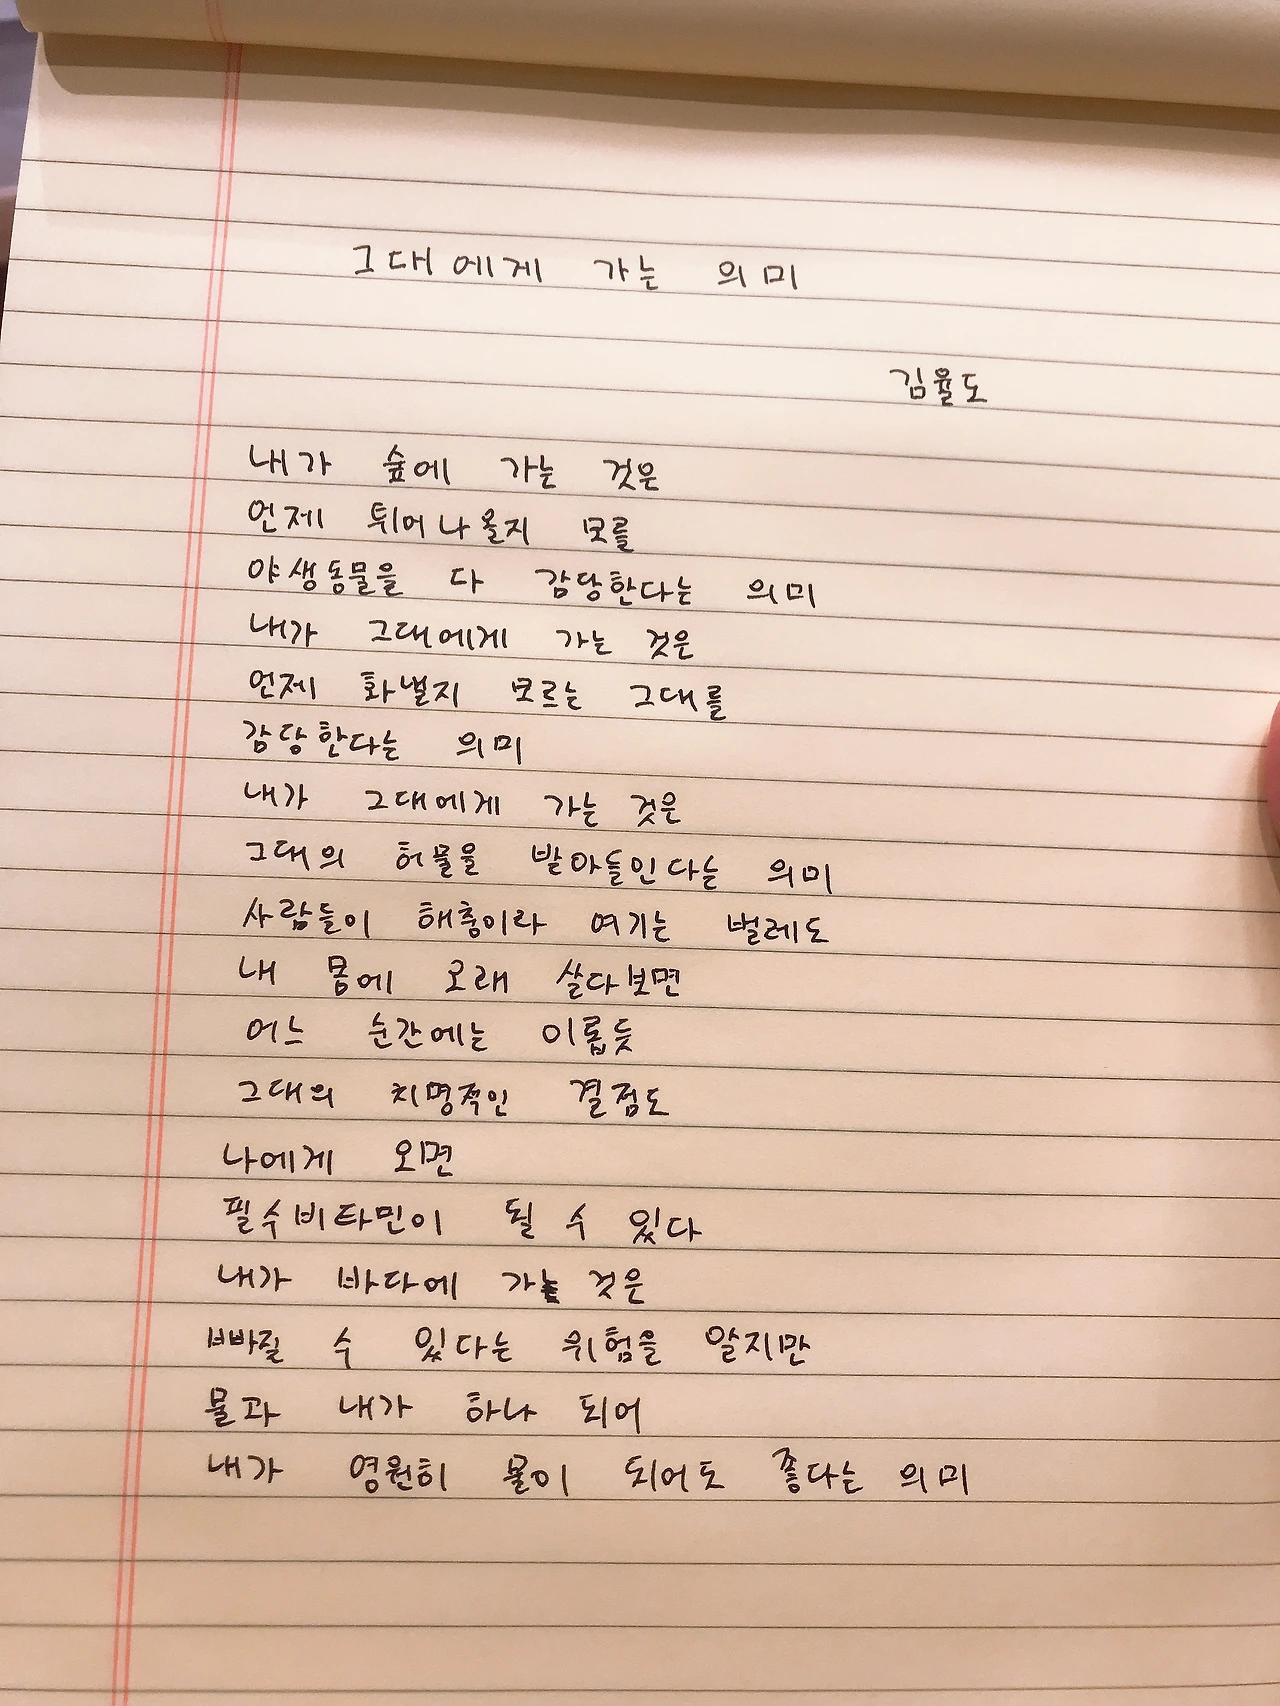 그대에게 가는 의미
김율도
내가 숲에 가는 것은
언제 튀어나올지 모를
야생동물을 다 감당한다는 의미
내가 그대에게 가는 것은
언제 화낼지 모르는 그대를
감당한다는 의미
내가 그대에게 가는 것은
그대의 허물을 받아들인다는 의미
사람들이 해충이라 여기는 벌레도
내 몸에 오래 살다보면
어느 순간에는 이롭듯
그대의 치명적인 결점도
나에게 오면
필수비타민이 될 수 있다
내가 바다에 가는 것은
빠질 수 있다는 위험을 알지만
물과 내가 하나 되어
내가 영원히 물이 되어도 좋다는 의미